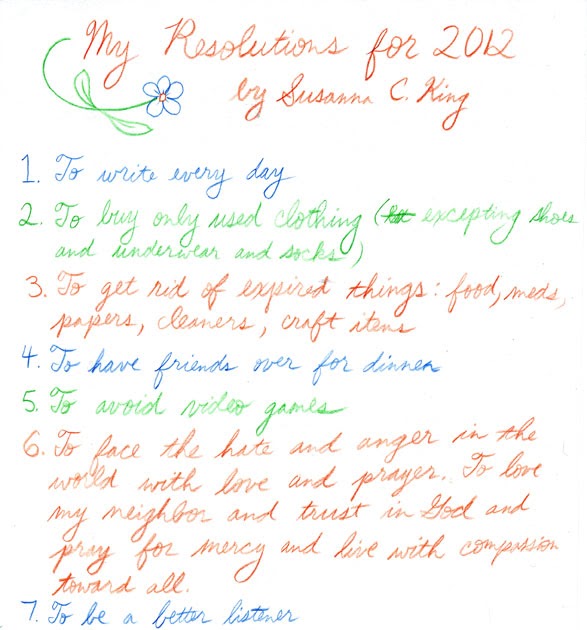 My Resolutions for 2012
by Susanna C. King
1. To write every day
2. To buy only used clothing ( excepting shoes
and underwear and socks)
3. To get rid of expired things: food, meds,
papers, cleaners, craft items
4. To have friends over for dinner
5. To avoid video games
6. To face the hate and anger in the
world with love and prayer. To love
my neighbor and trust in God and
pray for mercy and live with compassion
toward all.
7. To be a better listener